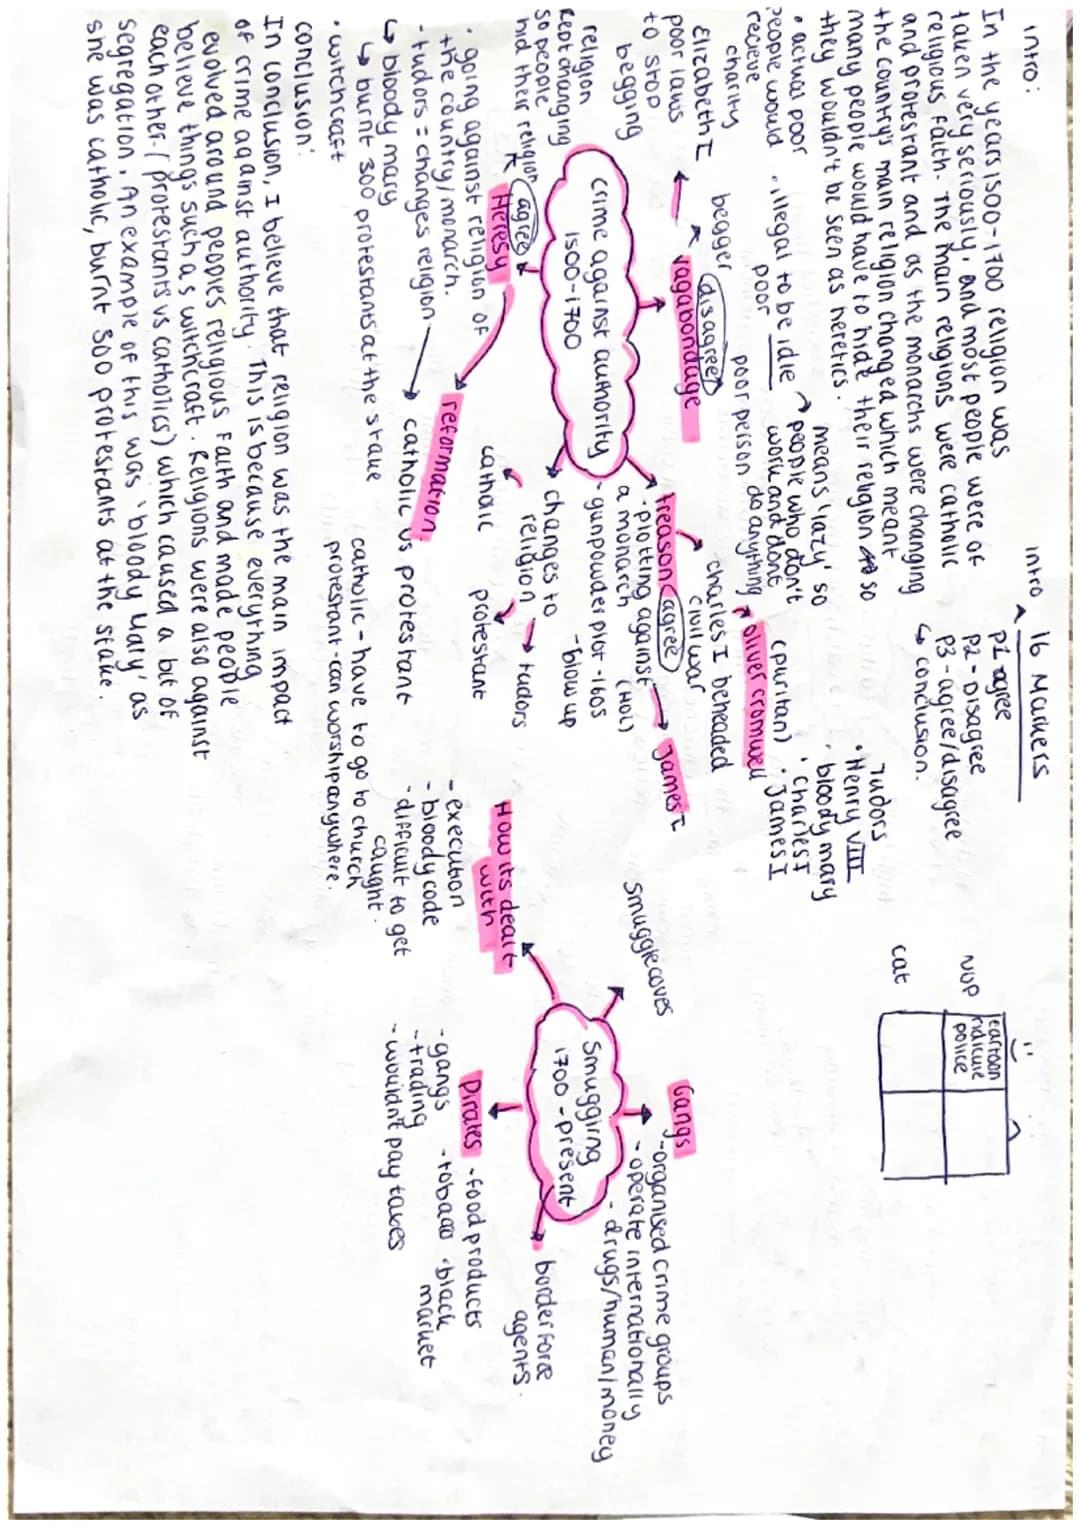 intro:
In the years 1500-1700 religion was
taken very seriously, and most people were of
religious faith. The main religions were catholic
and protestrant and as the monarchs were changing
the country's main religion changed which meant
many people would have to hide their religion so
they wouldn't be seen as heretics.
intro
16 Markers
P1 agree
P2 - Disagree
P3 - agree/disagree
↳ conclusion.
Tudors
• Henry VIII
• bloody mary
• Charles I
• James I
cartoon
ridicule
police
NOP
cat
Crime against authority
1500-1700
vagabondage
disagree
begger
• illegal to be idle
poor
→ people who don't
work and don't
do anything
means 'lazy' so
poor person
• actual poor
people would
recieve
charity
Elizabeth I
poor laws
to stop
begging
treason
agree
• plotting against
a monarch
(HOL)
- gunpowder plot - 1605
- blow up
James I
charles I beheaded
civil war
oliver cromwell
(puritan)
changes to
religion → tudors
catholic
protestant
Heresy
agree
religion
kept changing
so people
hid their religion
• going against religion of
the country/monarch.
- tudors = changes religion → catholic vs protestant
↳ bloody mary
↳ burnt 300 protestants at the stake
• witchcraft
reformation
catholic - have to go to church
protestant - can worship anywhere.
conclusion:
In conclusion, I believe that religion was the main impact
of crime against authority. This is because everything
evolved around peoples religious faith and made people
believe things such as witchcraft. Religions were also against
each other (protestants vs catholics) which caused a bit of
segregation. An example of this was 'bloody Mary' as
she was catholic, burnt 300 protestants at the stake.
Smuggirng
1700 - present
smugglecoves
Gangs
- organised crime groups
- operate internationally
- drugs/human/money
border force
agents.
Pirates
- food products
- gangs
- tobacco
- black
market
- trading
- wouldn't pay taxes
How its dealt
with
- execution
- bloody code
- difficult to get
caught.